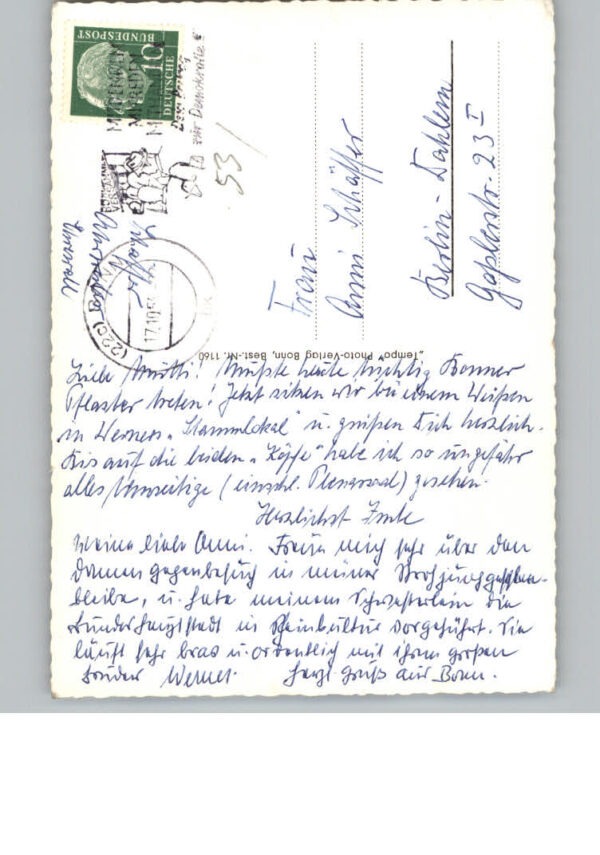 DEUTSCHE
BUNDESPOST
10
MITDENKEN
MITREDEN
zur Demokratie
(22c) BONN
17.10.
53/
Frau
Anni Schäffer
Berlin-Dahlem
Goßlerstr. 23 I
"Tempo" Photo-Verlag Bonn, Best.-Nr. 1160
Liebe Mutti! Mußte heute tüchtig Bonner
Pflaster treten! Jetzt sitzen wir bei einem Weißen
in Werners „Stammlokal" u. grüßen Dich herzlich.
Bis auf die beiden „Köpfe" habe ich so ungefähr
alles (einschl. Plenarsaal) gesehen.
Herzlichst
Meine liebe Anni. Freue mich sehr über den
Damengegenbesuch in meiner
bleibe, u. habe meinem Schwesterlein die
Bundeshauptstadt in Reinkultur vorgeführt. Sie
läuft sehr brav u. ordentlich mit ihrem großen
Bruder Werner. Herzl. Gruß aus Bonn.